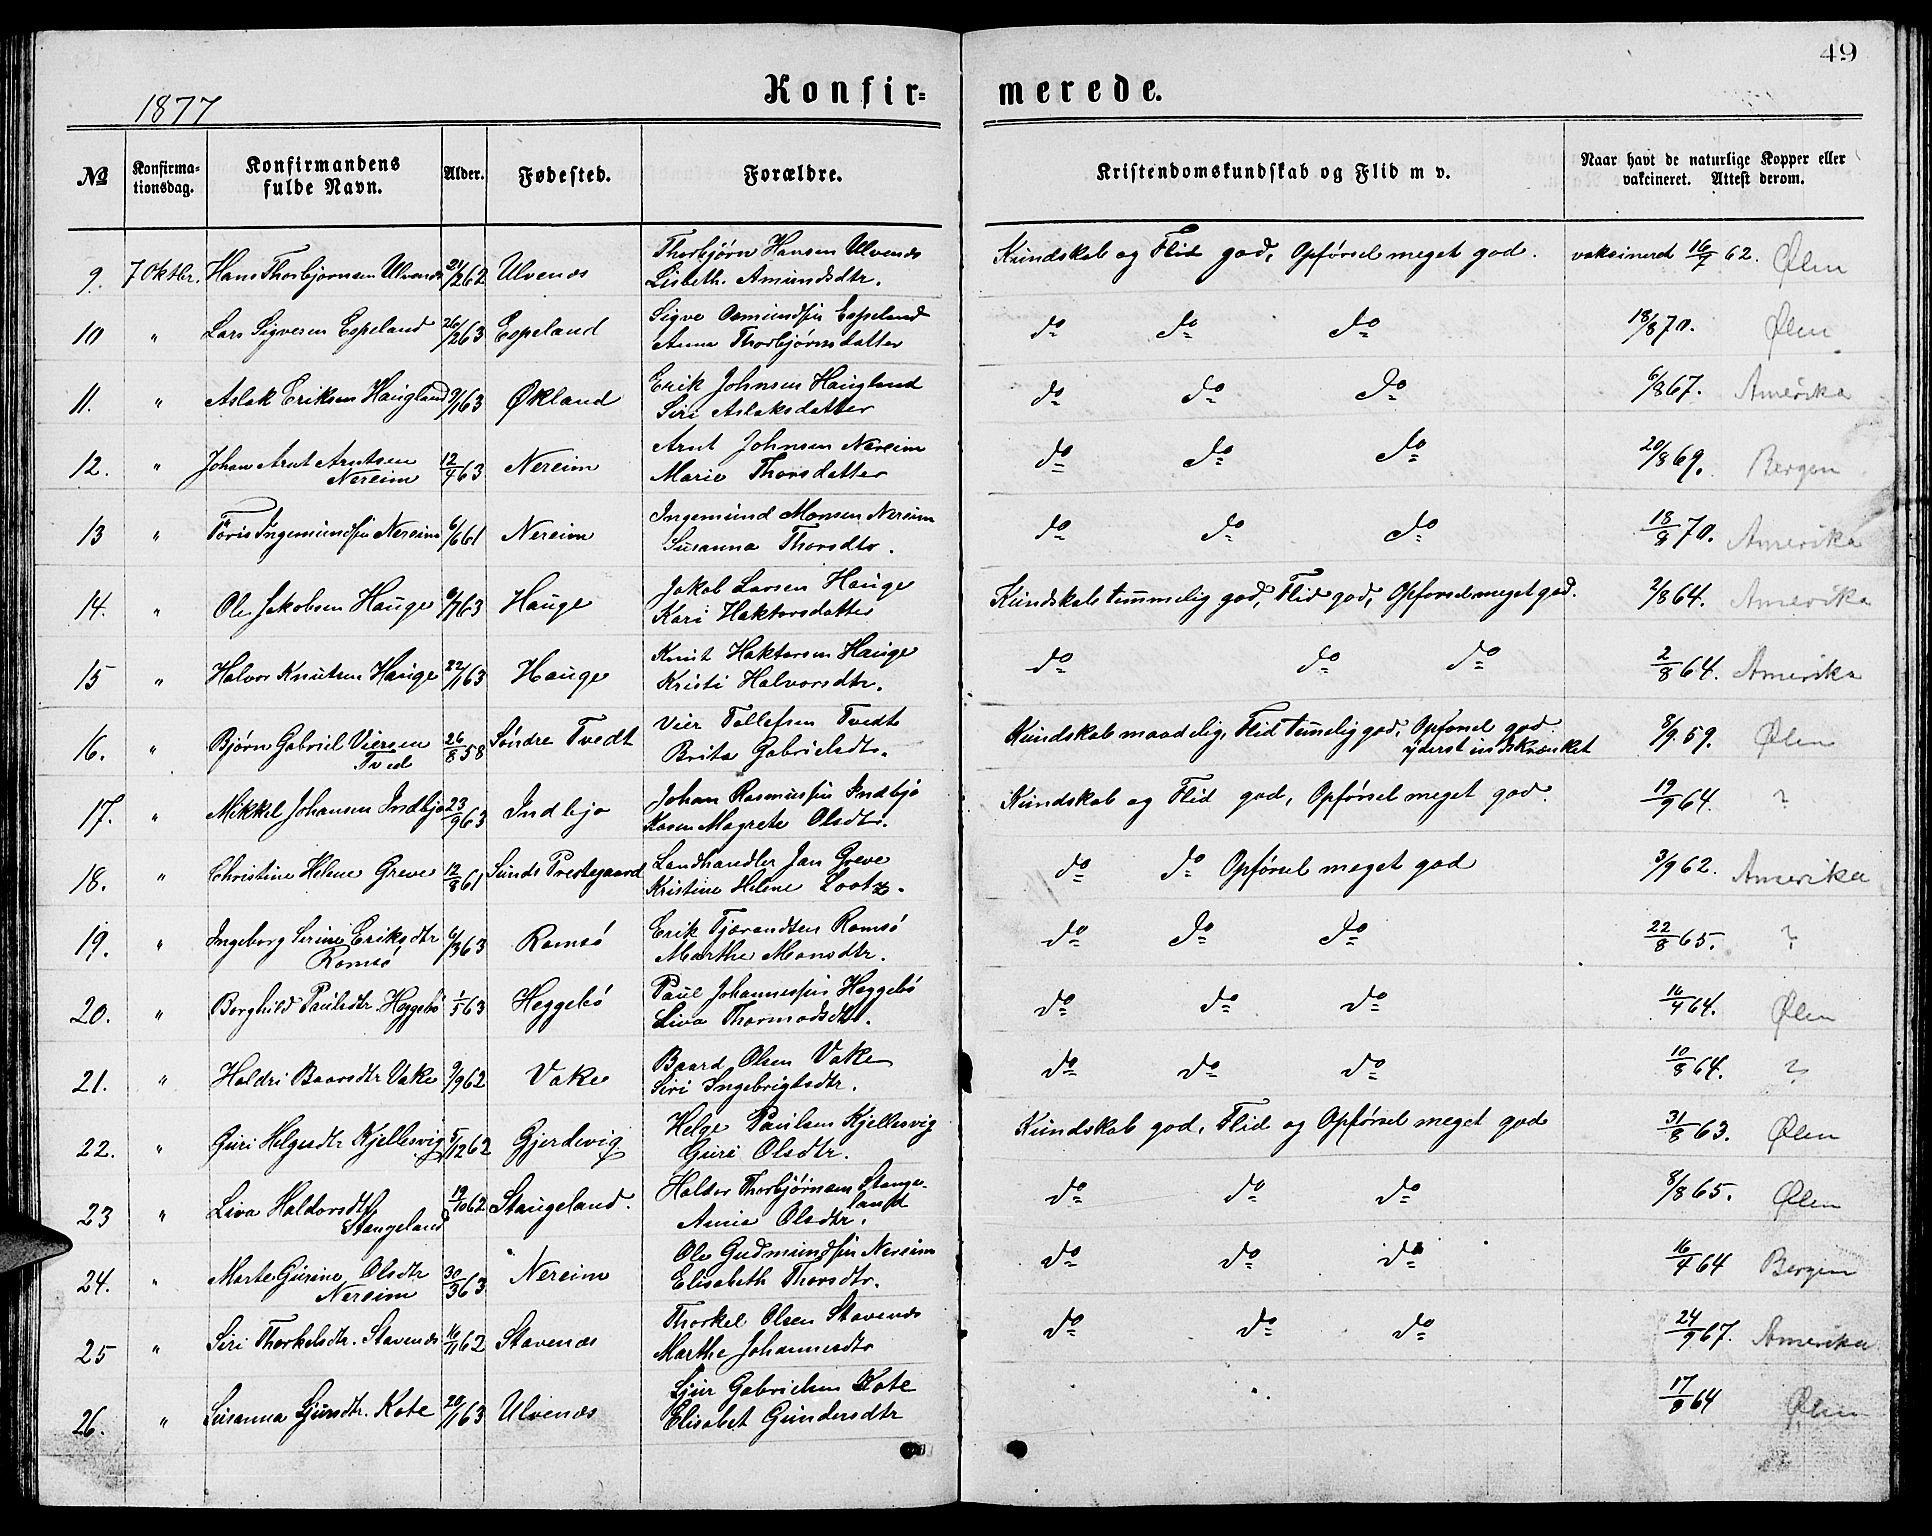 49
1877
Konfir-
merede.
No
Konfirma-
tionsdag.
Konfirmandens
fulde Navn.
Alder.
Fødested.
Forældre.
Kristendomskundskab og Flid m v.
Naar havt de naturlige Kopper eller
vakcineret. Attest derom.
9. 7 Oktbr. Hans Thorbjørnsen Ulvenæs 21/2 62 Ulvenæs Thorbjørn Hansen Ulvenæs Kundskab og Flid god, Opførsel meget god. vaksineret 16/7 62. Ølen
Lisbeth Amundsdtr.
10 " Lars Sigvesen Espeland 26/2 63 Espeland Sigve Osmundsen Espeland do do do 18/8 70. Ølen
Anna Thorbjørnsdatter
11. " Aslak Eriksen Haugland 9/1 63 Økland Erik Johnsen Haugland do do do 6/8 67. Amerika
Siri Aslaksdatter
12. " Johan Arnt Arntsen 12/4 63 Nereim Arnt Johnsen Nereim do do do 20/8 69. Bergen
Nereim Marie Thorsdatter
13 " Ingemundsen Nereim 6/6 61 Nereim Ingemund Monsen Nereim do do do 18/8 70. Amerika
Susanna Thorsdtr.
14. " Ole Jakobsen Hauge 6/7 63 Hauge Jakob Larsen Hauge Kundskab temmelig god, Flid god, Opførsel meget god. 2/8 64. Amerika
Kari Haktorsdatter
15 " Halvor Knutsen Hauge 22/1 63 Hauge Knut Haktorsen Hauge do do do 2/8 64. Amerika
Kristi Halvorsdtr.
16. " Bjørn Gabriel Viersen 26/8 58 Søndre Tvedt Vier Tollefsen Tvedt Kundskab maadelig, Flid temelig god, Opførsel god 8/9 59. Ølen
Tved Brita Gabrielsdtr. yderst indskrænket
17. " Mikkel Johansen Indbjo 23/9 63 Indbjo Johan Rasmussen Indbjo Kundskab og Flid god, Opførsel meget god. 19/9 64. ?
Karen Magrete Olsdtr.
18. " Christine Helene Greve 12/8 61 Sunds Prestegaard Landhandler Jan Greve do do Opførsel meget god 3/9 62. Amerika
Kristine Helene Lootz.
19. " Ingeborg Serine Eriksdtr 6/3 63 Romsø Erik Tjærandsen Romsø do do do 22/8 65. ?
Romsø Marthe Monsdtr.
20. " Borghild Paulsdtr. Heggebø 1/5 63 Heggebø Paul Johannessen Heggebø do do do 16/4 64. Ølen
Liva Thormodsdtr.
21. " Haldri Baarsdtr Vake 9/9 62 Vake Baard Olsen Vake do do do 10/8 64. ?
Siri Ingebrigtsdtr.
22. " Guri Helgesdtr Kjellesvig 5/12 62 Gjerdevig Helge Paulsen Kjellesvig Kundskab god, Flid og Opførsel meget god 31/8 63. Ølen
Guri Olsdtr.
23 " Liva Haldorsdtr 19/10 62 Stangeland. Haldor Thorbjørnsen Stange- do do do 8/8 65. Ølen
Stangeland land
Anna Olsdtr.
24. " Marte Gurine Olsdtr 30/3 63 Nereim Ole Gudmundsen Nereim do do do 16/4 64 Bergen
Nereim Elisabeth Thorsdtr.
25 " Siri Thorkelsdtr. Stavenæs 16/11 62 Stavenæs Thorkel Olsen Stavenæs do do do 24/9 67. Amerika
Marthe Johannesdtr
26. " Susanna Sjursdtr. Kote 20/1 63 Ulvenæs Sjur Gabrielsen Kote " 17/8 64 Ølen
Elisabet Gundersdtr